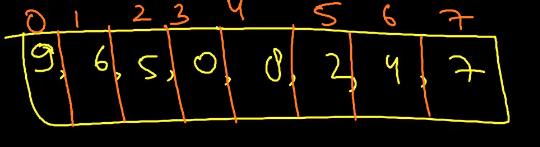 0 1 2 3 4 5 6 7
9, 6, 5, 0, 8, 2, 4, 7